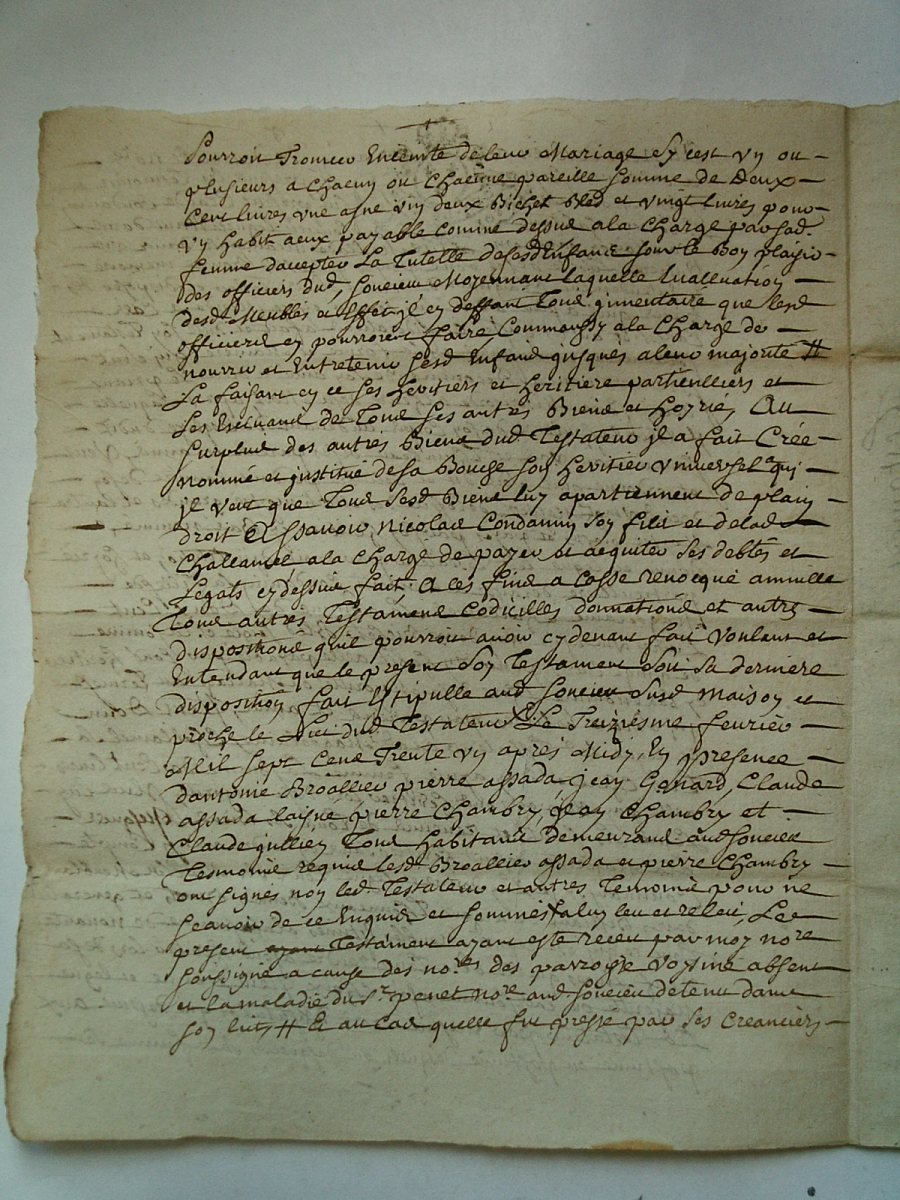 pourroit trouver Enceinte deleur Mariage sy cest vn ou
plusieurs a chacun ou chacune pareille somme de deux
Cent livres vne asne vin deux Bichet Bled et vingt livres pour
vn habit a eux payable comme dessus ala charge par sad.
femme daccepter La Tutelle desesd Enfans sour le Bon plaisir
des officiers dud. soucieu Moyennant laquelle Evalluation
desd Meubles et Effet jl en deffant Tous jnventaire que lesd
officiers en pourroient faire, Comm aussy ala charge de
nourrir et Entretenir sesd Enfans jusques aleur majorité #
La faisant en ce ses héritiers et héritière particulliers et
Les Excluant de Tous ses autres Biens et hoyries, Au
surplus des autres Biens dud Testateur jl a fait Créé
nommé et jnstitué desa Bouche son héritier vniversel a qui
jl veut que Tous sesd Biens luy apartiennent de plain
droit Assavoir Nicolas Condamin son filis et delad
Challamel ala charge de payer et acquiter ses debtes et
Legats cydessus fait, A Ces fins a Casse revocqué annulle
Tous autres Testamens codicilles donnations et autres
dispositions quil pourroit avoir cydevant fait voulant et
Entendant que le present son Testament soit sa derniere
disposition, fait Estipullé aud soucieu susd maison et
proche le Lict dud Testateur Le Treiziesme fevrier
Mil sept Cens Trente vn apres Midy, En presence
dantoine Broallier pierre assada jean Genard, Claude
assada laisné pierre Chambry, jean Chambry et
Claude jullien Tous habitans demeurans aud soucieu
Tesmoins requis lesd Broallier assada et pierre Chambry
ont signés non led. Testateur et autres Temoins pour ne
scavoir de ce Enquis et sommés a luy leu et releu, Le
present ayant Testament ayant este receu par moy no.re
soussigné a cause des no.res des parroisse voysine absent
et la maladie du s.r penet no.re aud soucieu detenu dans
son lict, # Et au cas quelle fut pressé par ses creanciers